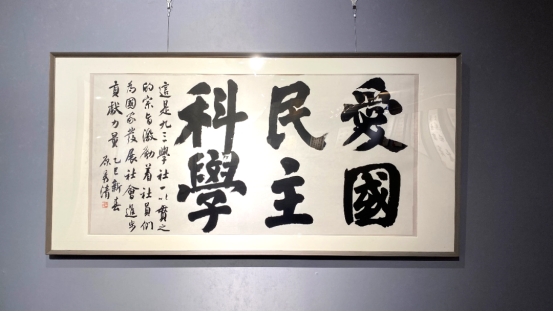 愛國
民主
科學
這是九三學社一以貫之
的宗旨激勵着社員們
為國家發展社會進步
貢獻力量 乙巳新春
原秀清